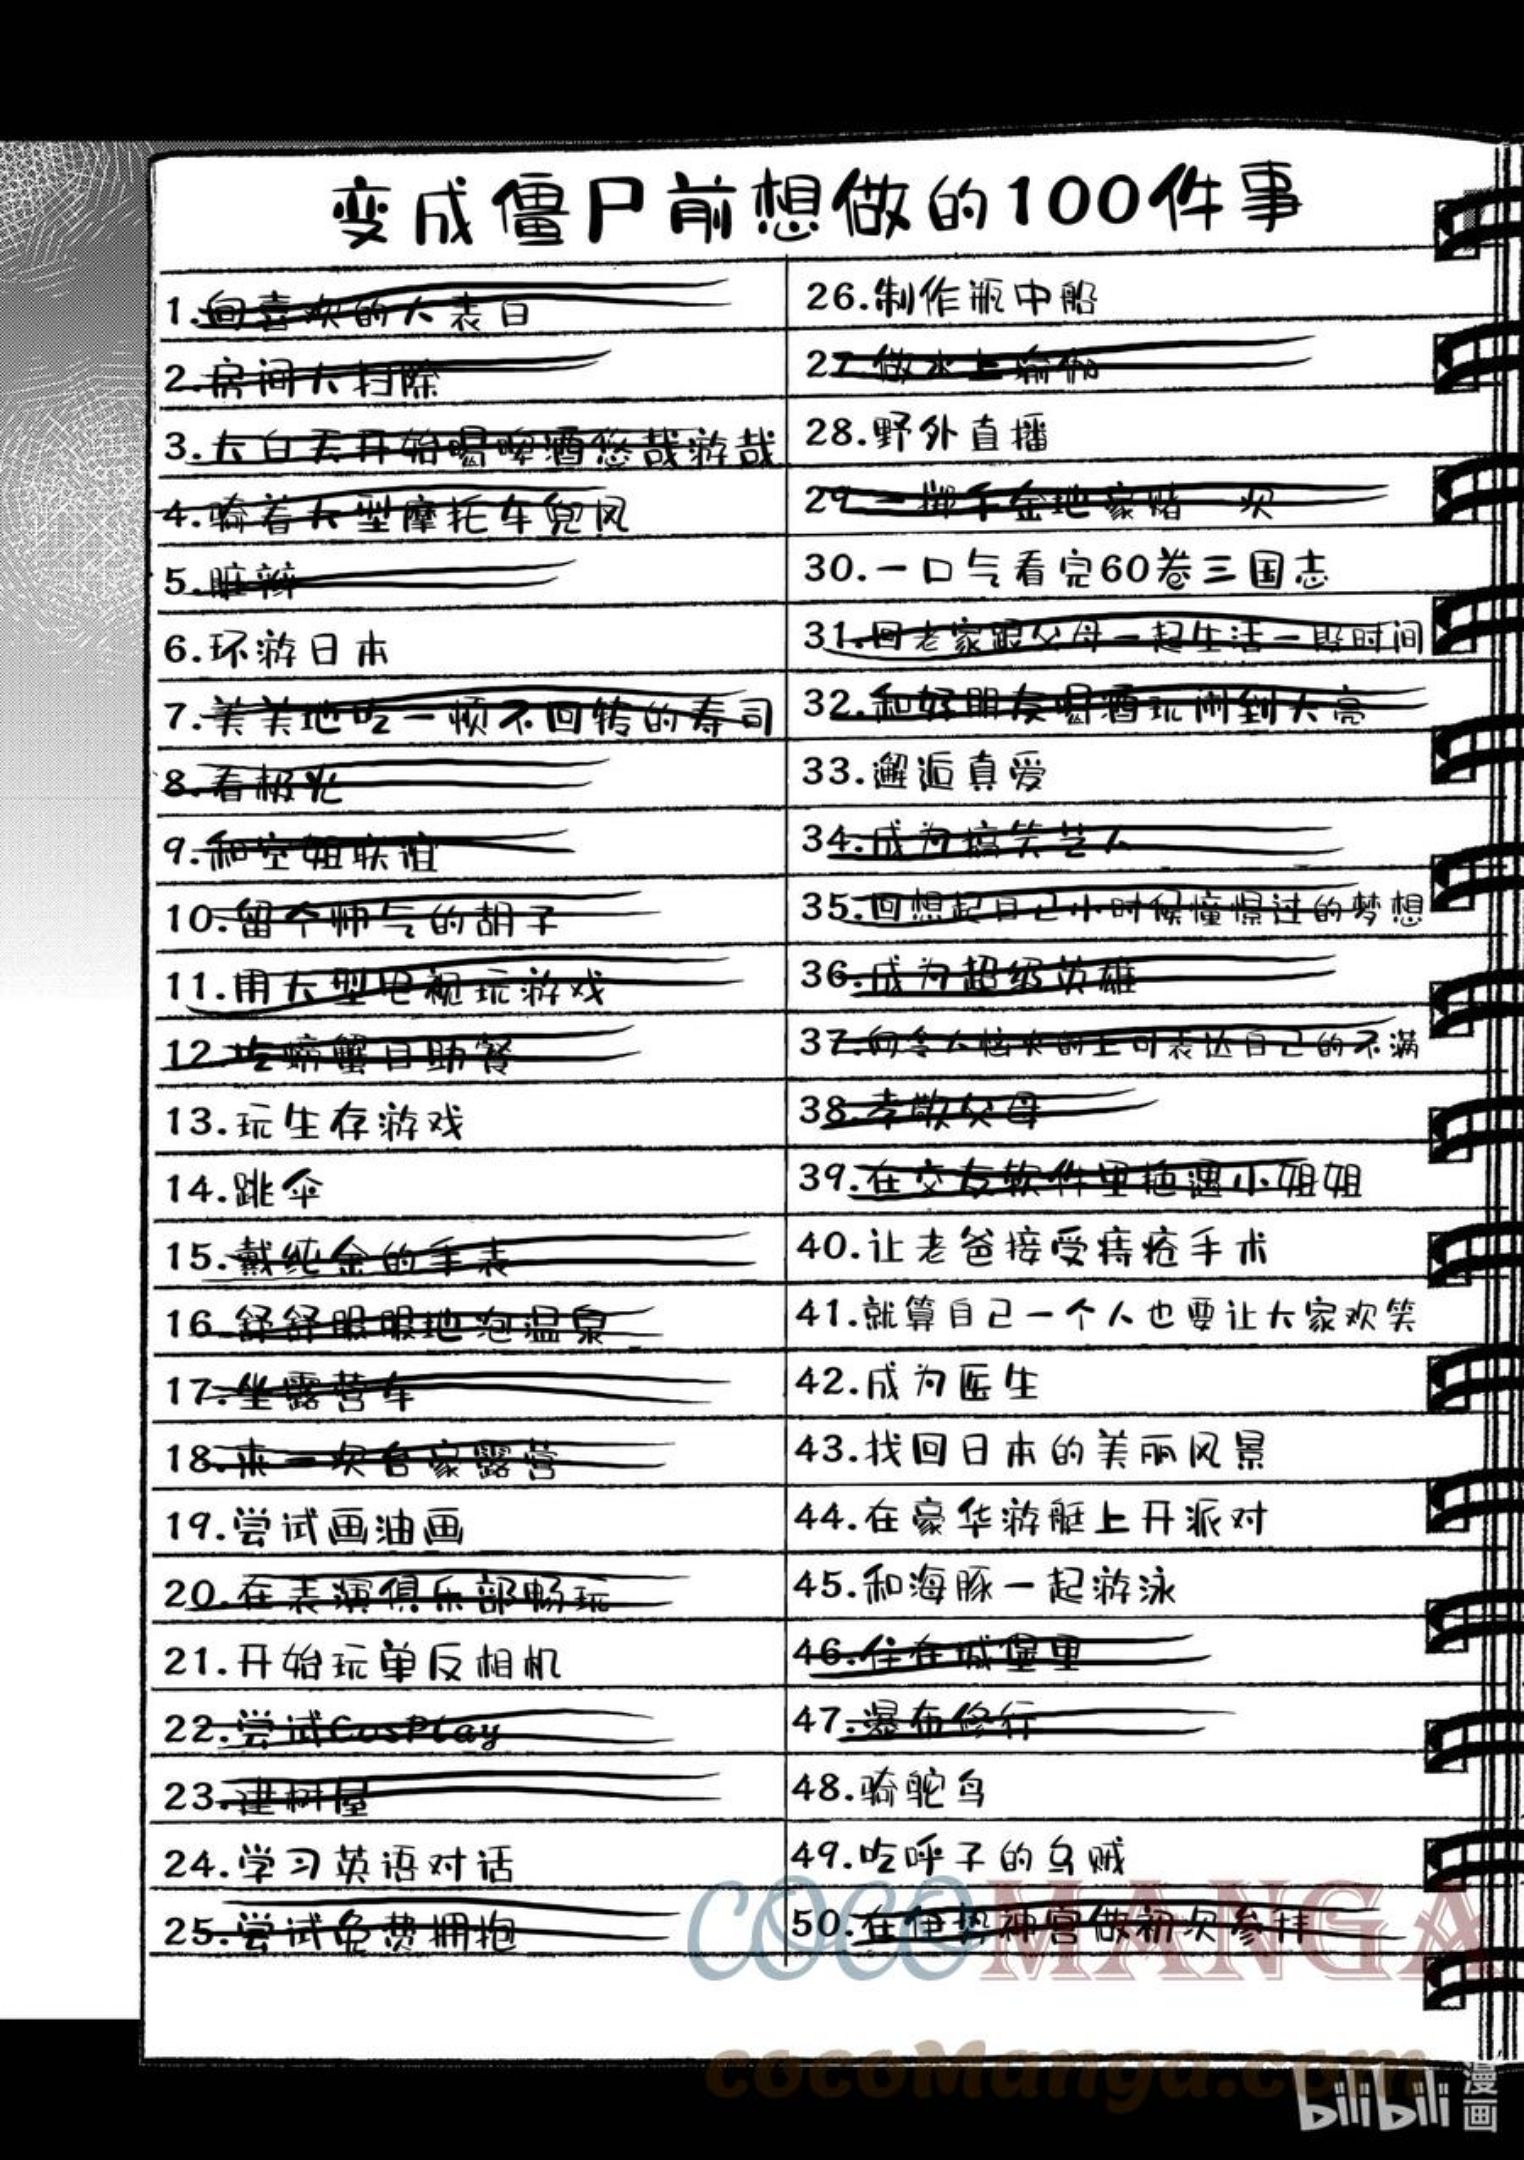 变成僵尸前想做的100件事
1.向喜欢的人表白
2.房间大扫除
3.大白天开始喝啤酒悠哉游哉
4.骑着大型摩托车兜风
5.脏辫
6.环游日本
7.美美地吃一顿不回转的寿司
8.看极光
9.和空姐联谊
10.留个帅气的胡子
11.用大型电视玩游戏
12.吃螃蟹自助餐
13.玩生存游戏
14.跳伞
15.戴纯金的手表
16.舒舒服服地泡温泉
17.坐露营车
18.来一次合家露营
19.尝试画油画
20.在表演俱乐部畅玩
21.开始玩单反相机
22.尝试CosPlay
23.建树屋
24.学习英语对话
25.尝试免费拥抱
26.制作瓶中船
27.做水上瑜伽
28.野外直播
29.一掷千金地豪赌一次
30.一口气看完60卷三国志
31.回老家跟父母一起生活一段时间
32.和好朋友喝酒玩闹到天亮
33.邂逅真爱
34.成为搞笑艺人
35.回想起自己小时候憧憬过的梦想
36.成为超级英雄
37.向令人恼火的上司表达自己的不满
38.孝敬父母
39.在交友软件里艳遇小姐姐
40.让老爸接受痔疮手术
41.就算自己一个人也要让大家欢笑
42.成为医生
43.找回日本的美丽风景
44.在豪华游艇上开派对
45.和海豚一起游泳
46.住在城堡里
47.瀑布修行
48.骑鸵鸟
49.吃呼子的乌贼
50.在伊势神宫做初次参拜
COCOMANGA
cocoManga.com
bilibili 漫画